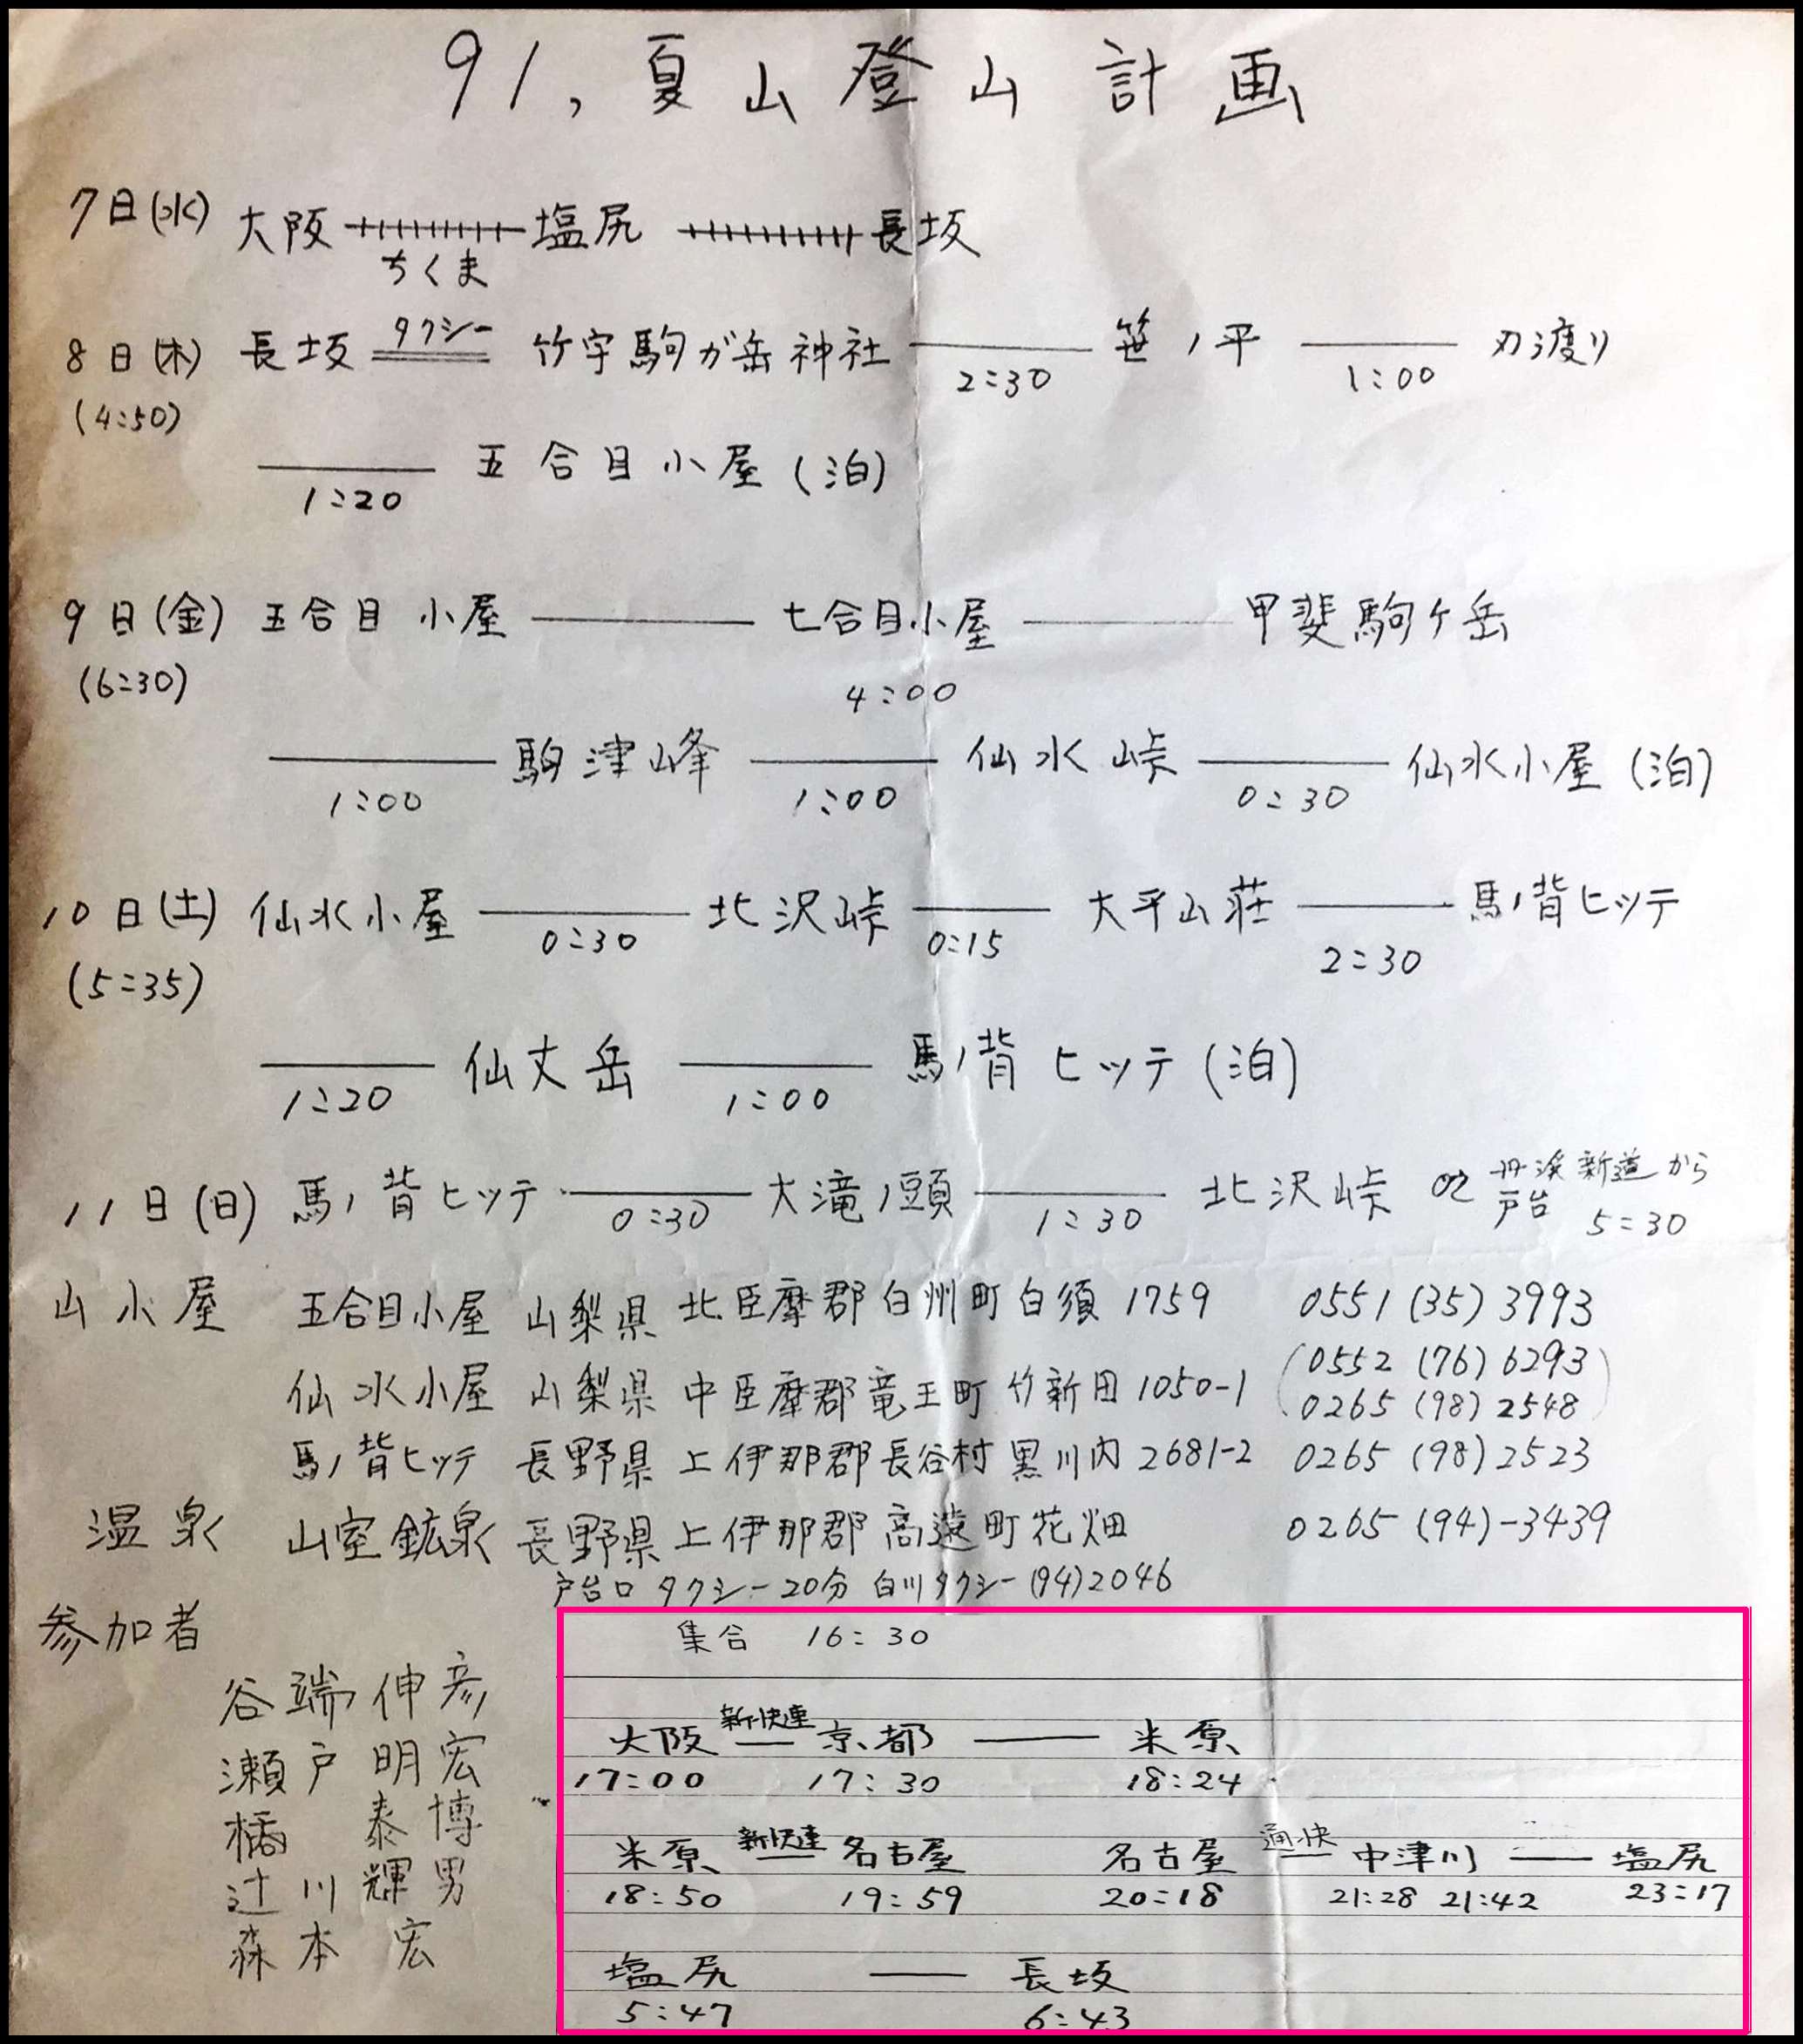 91, 夏山登山計画
7日(水) 大阪 塩尻 長坂
ちくま
8日(木) 長坂 タクシー 竹宇駒が岳神社 笹ノ平 刃渡り
(4:50) 2:30 1:00
五合目小屋(泊)
1:20
9日(金) 五合目小屋 七合目小屋 甲斐駒ヶ岳
(6:30) 4:00
駒津峰 仙水峠 仙水小屋(泊)
1:00 1:00 0:30
10日(土) 仙水小屋 北沢峠 大平山荘 馬ノ背ヒッテ
0:30 0:15 2:30
(5:35)
仙丈岳 馬ノ背ヒッテ(泊)
1:20 1:00
11日(日) 馬ノ背ヒッテ 大滝ノ頭 北沢峠 or 丹渓新道から
0:30 1:30 戸台 5:30
山小屋 五合目小屋 山梨県 北臣摩郡白州町白須1759 0551(35)3993
(0552(76)6293
仙水小屋 山梨県 中臣摩郡竜王町竹新田1050-1 0265(98)2548)
馬ノ背ヒッテ 長野県 上伊那郡長谷村黒川内2681-2 0265(98)2523
温泉 山室鉱泉 長野県 上伊那郡高遠町花畑 0265(94)-3439
戸台口 タクシー20分 白川タクシー(94)2046
参加者
谷端伸彦
瀬戸明宏
橘泰博
辻川輝男
森本宏
集合 16:30
大阪 新快速 京都 米原
17:00 17:30 18:24
米原 新快速 名古屋 名古屋 通快 中津川 塩尻
18:50 19:59 20:18 21:28 21:42 23:17
塩尻 長坂
5:47 6:43